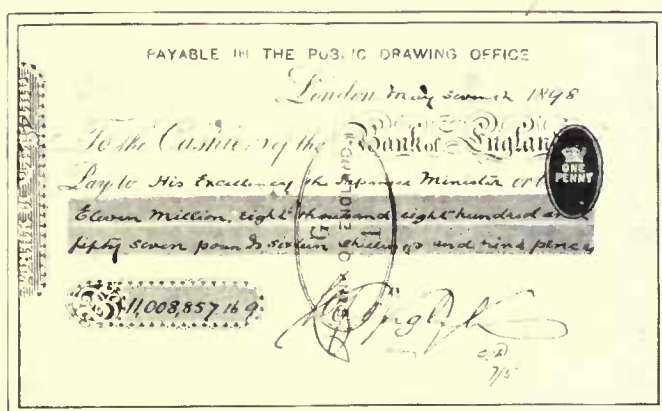 PAYABLE IN THE PUBLIC DRAWING OFFICE
London May seventh 1898
To the Cashiers of the Bank of England
ONE PENNY
Pay to His Excellency the Japanese Minister or
Eleven Million, eight thousand eight hundred and
fifty seven pounds sixteen shillings and nine pence
£11,008,857.16.9
BANK OF ENGLAND
G
1
7/5